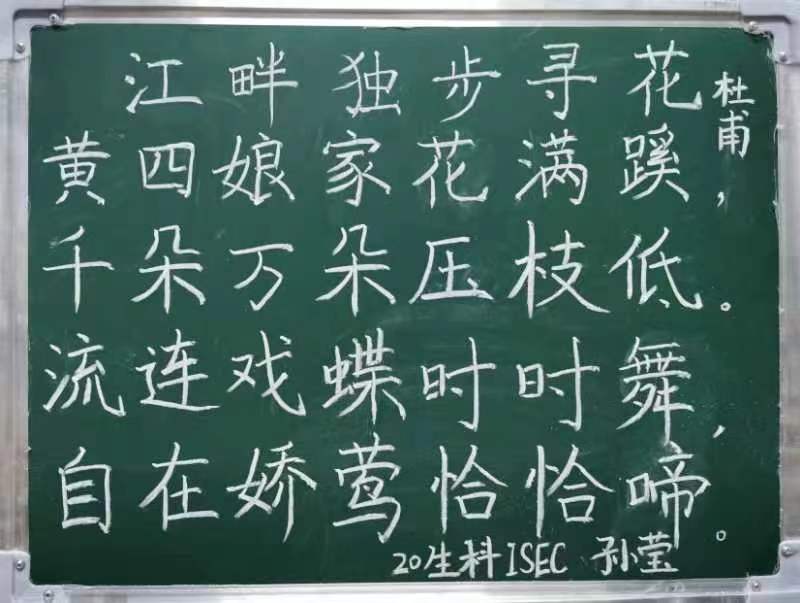 江畔独步寻花
杜甫
黄四娘家花满蹊，
千朵万朵压枝低。
流连戏蝶时时舞，
自在娇莺恰恰啼。
20生科ISEC 孙莹